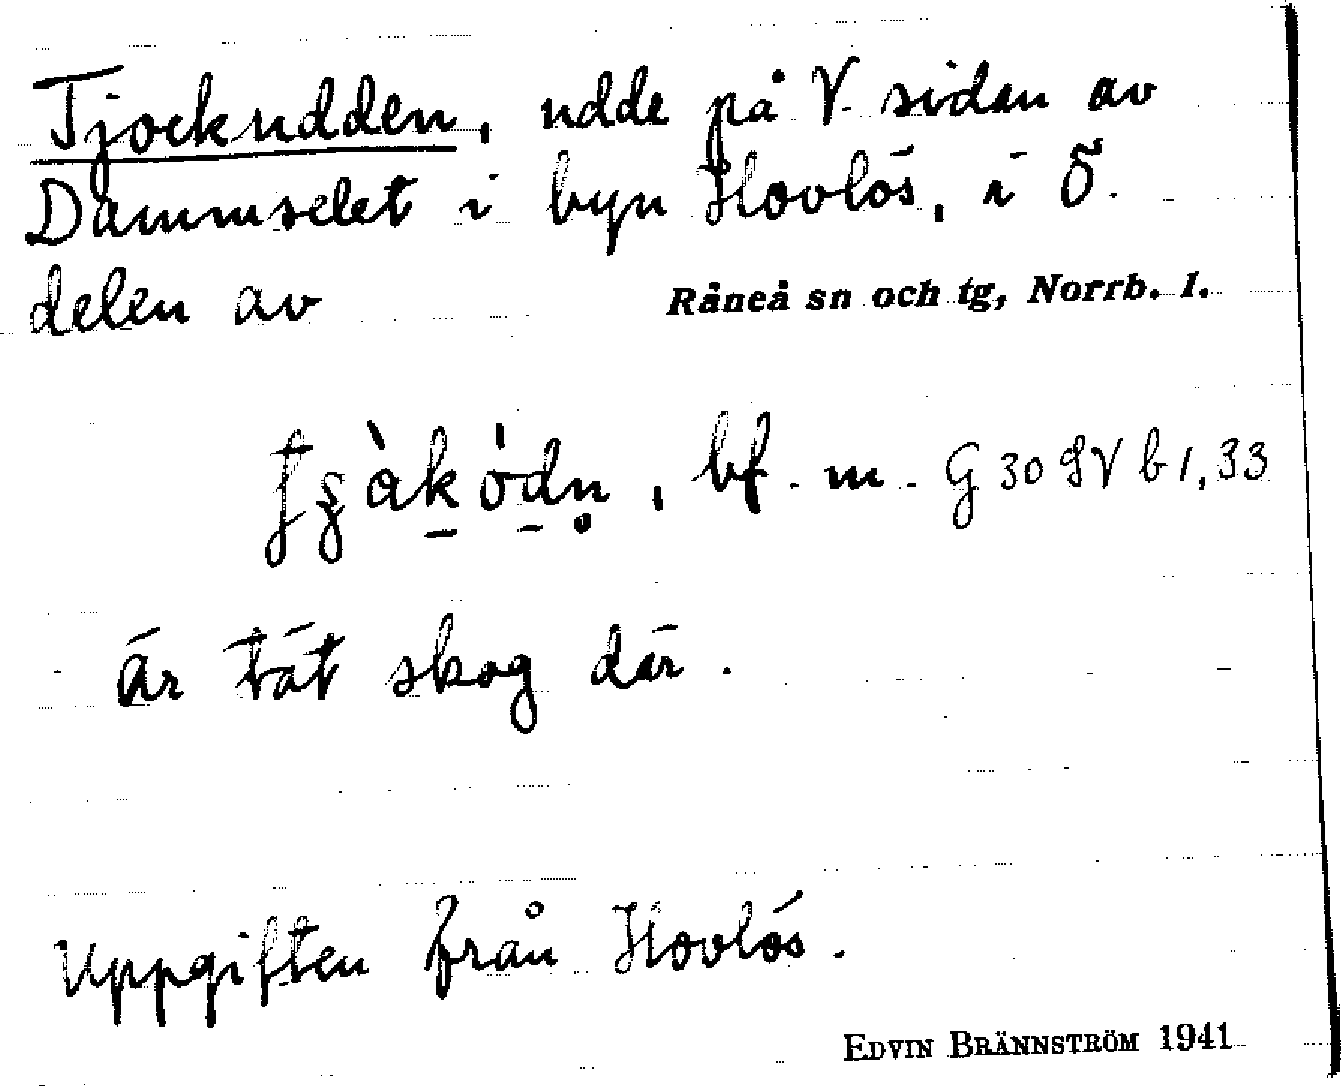 Tjockudden, udde på V. sidan av
Dammselet i byn Hovlös, i Ö.
delen av Råneå sn och tg, Norrb. l.
bf. m. G 30 SV b 1, 33
är tät skog där.
Uppgiften från Hovlös.
EDVIN BRÄNNSTRÖM 1941